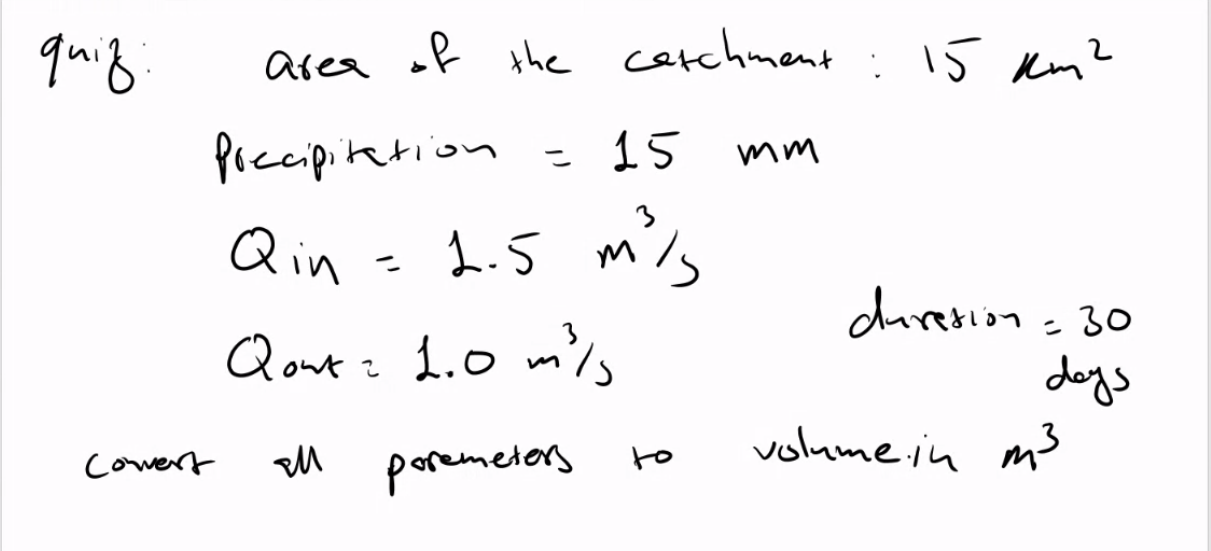 quiz: area of the catchment : 15 km²
Precipitation = 15 mm
Qin = 1.5 m³/s
Qout = 1.0 m³/s
duration = 30 days
convert all parameters to volume in m³